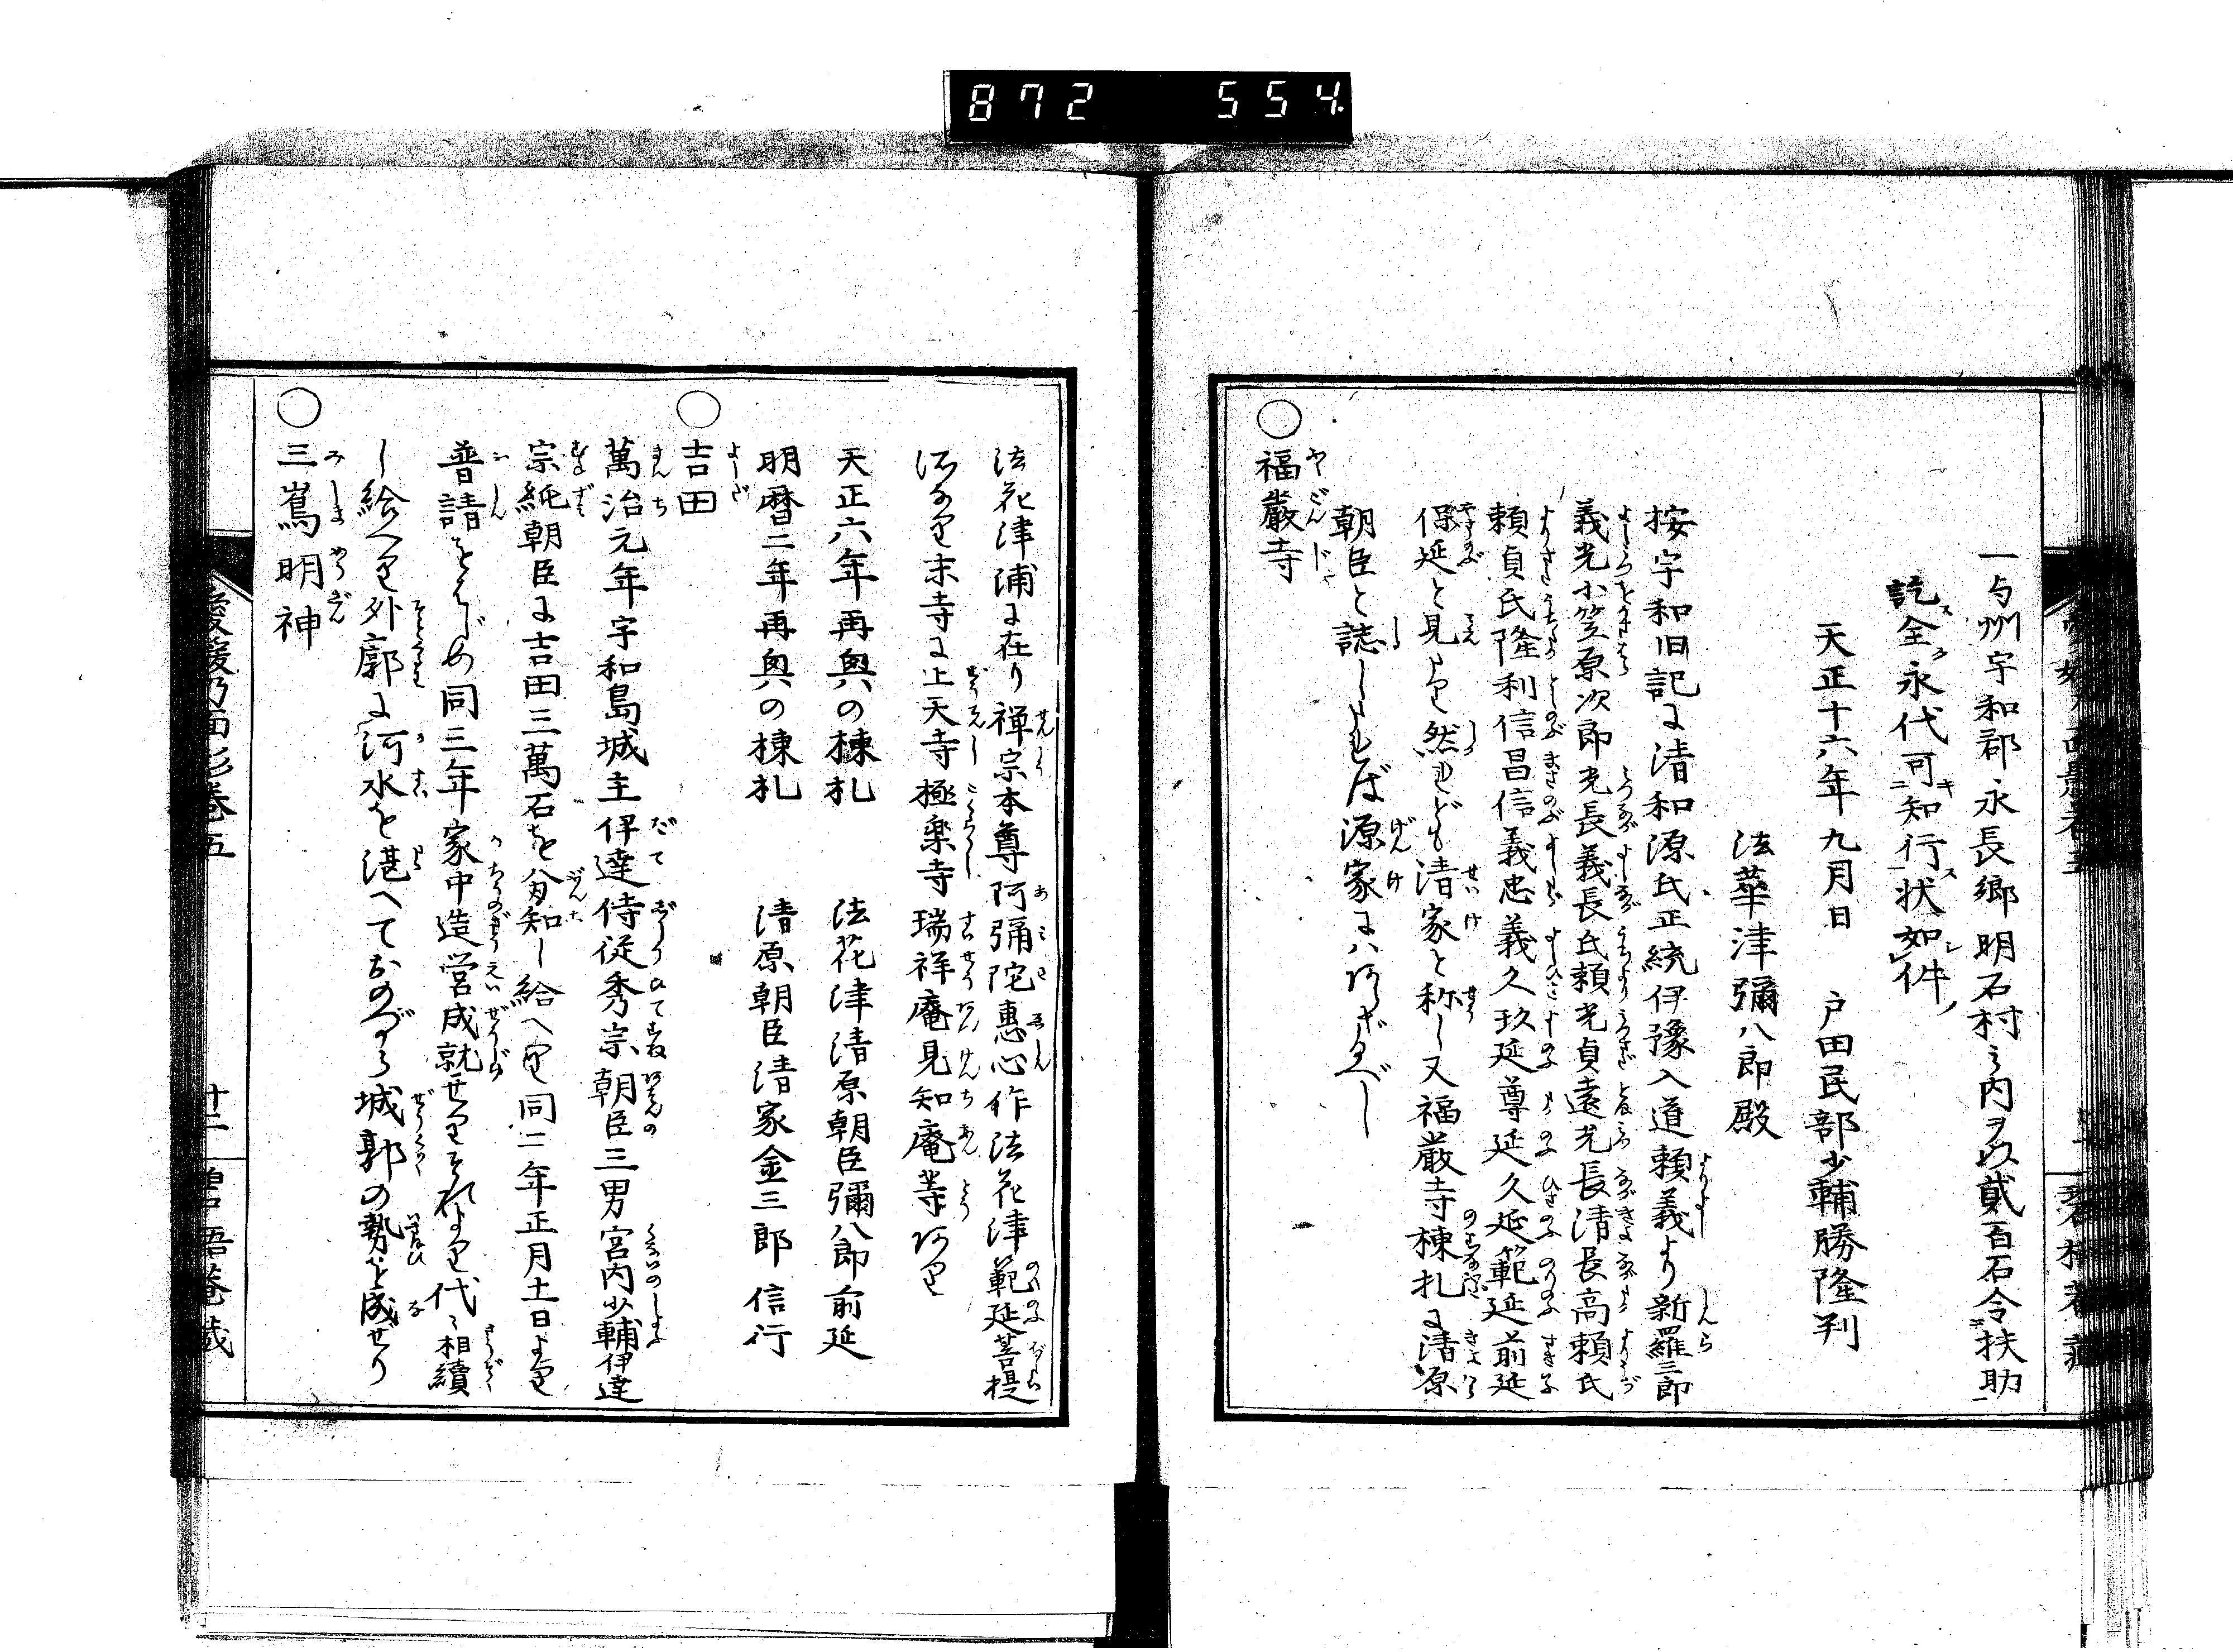 872 554
一与州宇和郡永長郷明石村之内ヲ以貳百石令扶助
訖全永代可知行状如件
天正十六年九月日 戸田民部少輔勝隆判
法華津彌八郎殿
按宇和旧記に清和源氏正統伊豫入道頼義より新羅三郎
義光小笠原次郎光長義長氏頼光貞遠光長清長高頼氏
頼貞氏隆利信昌信義忠義久玖延尊延久延範延前延
保延と見えたり然れども清家と称し又福巌寺棟札に清原
朝臣と誌したれば源家にハあらざるべし
○福巌寺
法花津浦に在り禅宗本尊阿彌陀惠心作法花津範延菩提
所なり末寺に上天寺極楽寺瑞祥庵見知庵等あり
天正六年再興の棟札 法花津清原朝臣彌八郎前延
明暦二年再興の棟札 清原朝臣清家金三郎信行
○吉田
萬治元年宇和島城主伊達侍従秀宗朝臣三男宮内少輔伊達
宗純朝臣に吉田三萬石を分知し給へり同二年正月土日より
普請をはじめ同三年家中造営成就せりそれより代々相續
し給へり外廓に河水を湛へておのづから城郭の勢を成せり
○三嶌明神
愛媛乃面影巻五 十二